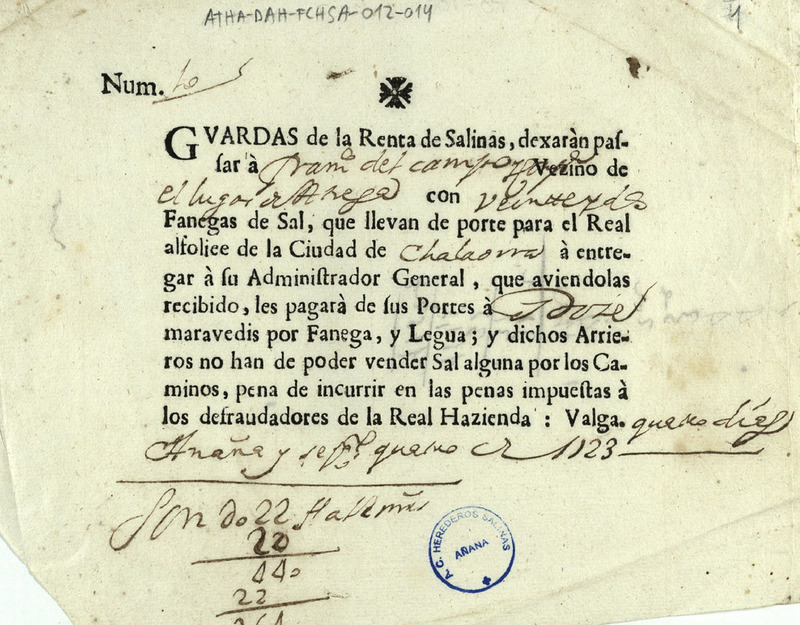 ATHA-DAH-FCHSA-012-014
Num.
GVARDAS de la Renta de Salinas, dexaràn pas-
sar à Franco del campo Vezino de
el lugar de con veinte y dos
Fanegas de Sal, que llevan de porte para el Real
alfoliee de la Ciudad de Chalaorra à entre-
gar à su Administrador General, que aviendolas
recibido, les pagarà de sus Portes à Doze
maravedis por Fanega, y Legua; y dichos Arrie-
ros no han de poder vender Sal alguna por los Ca-
minos, pena de incurrir en las penas impuestas à
los defraudadores de la Real Hazienda: Valga. quatro días
Anana y sepre quatro de 1723
Son do 22
22
20
440
22
264
A.C. HEREDEROS SALINAS
AÑANA